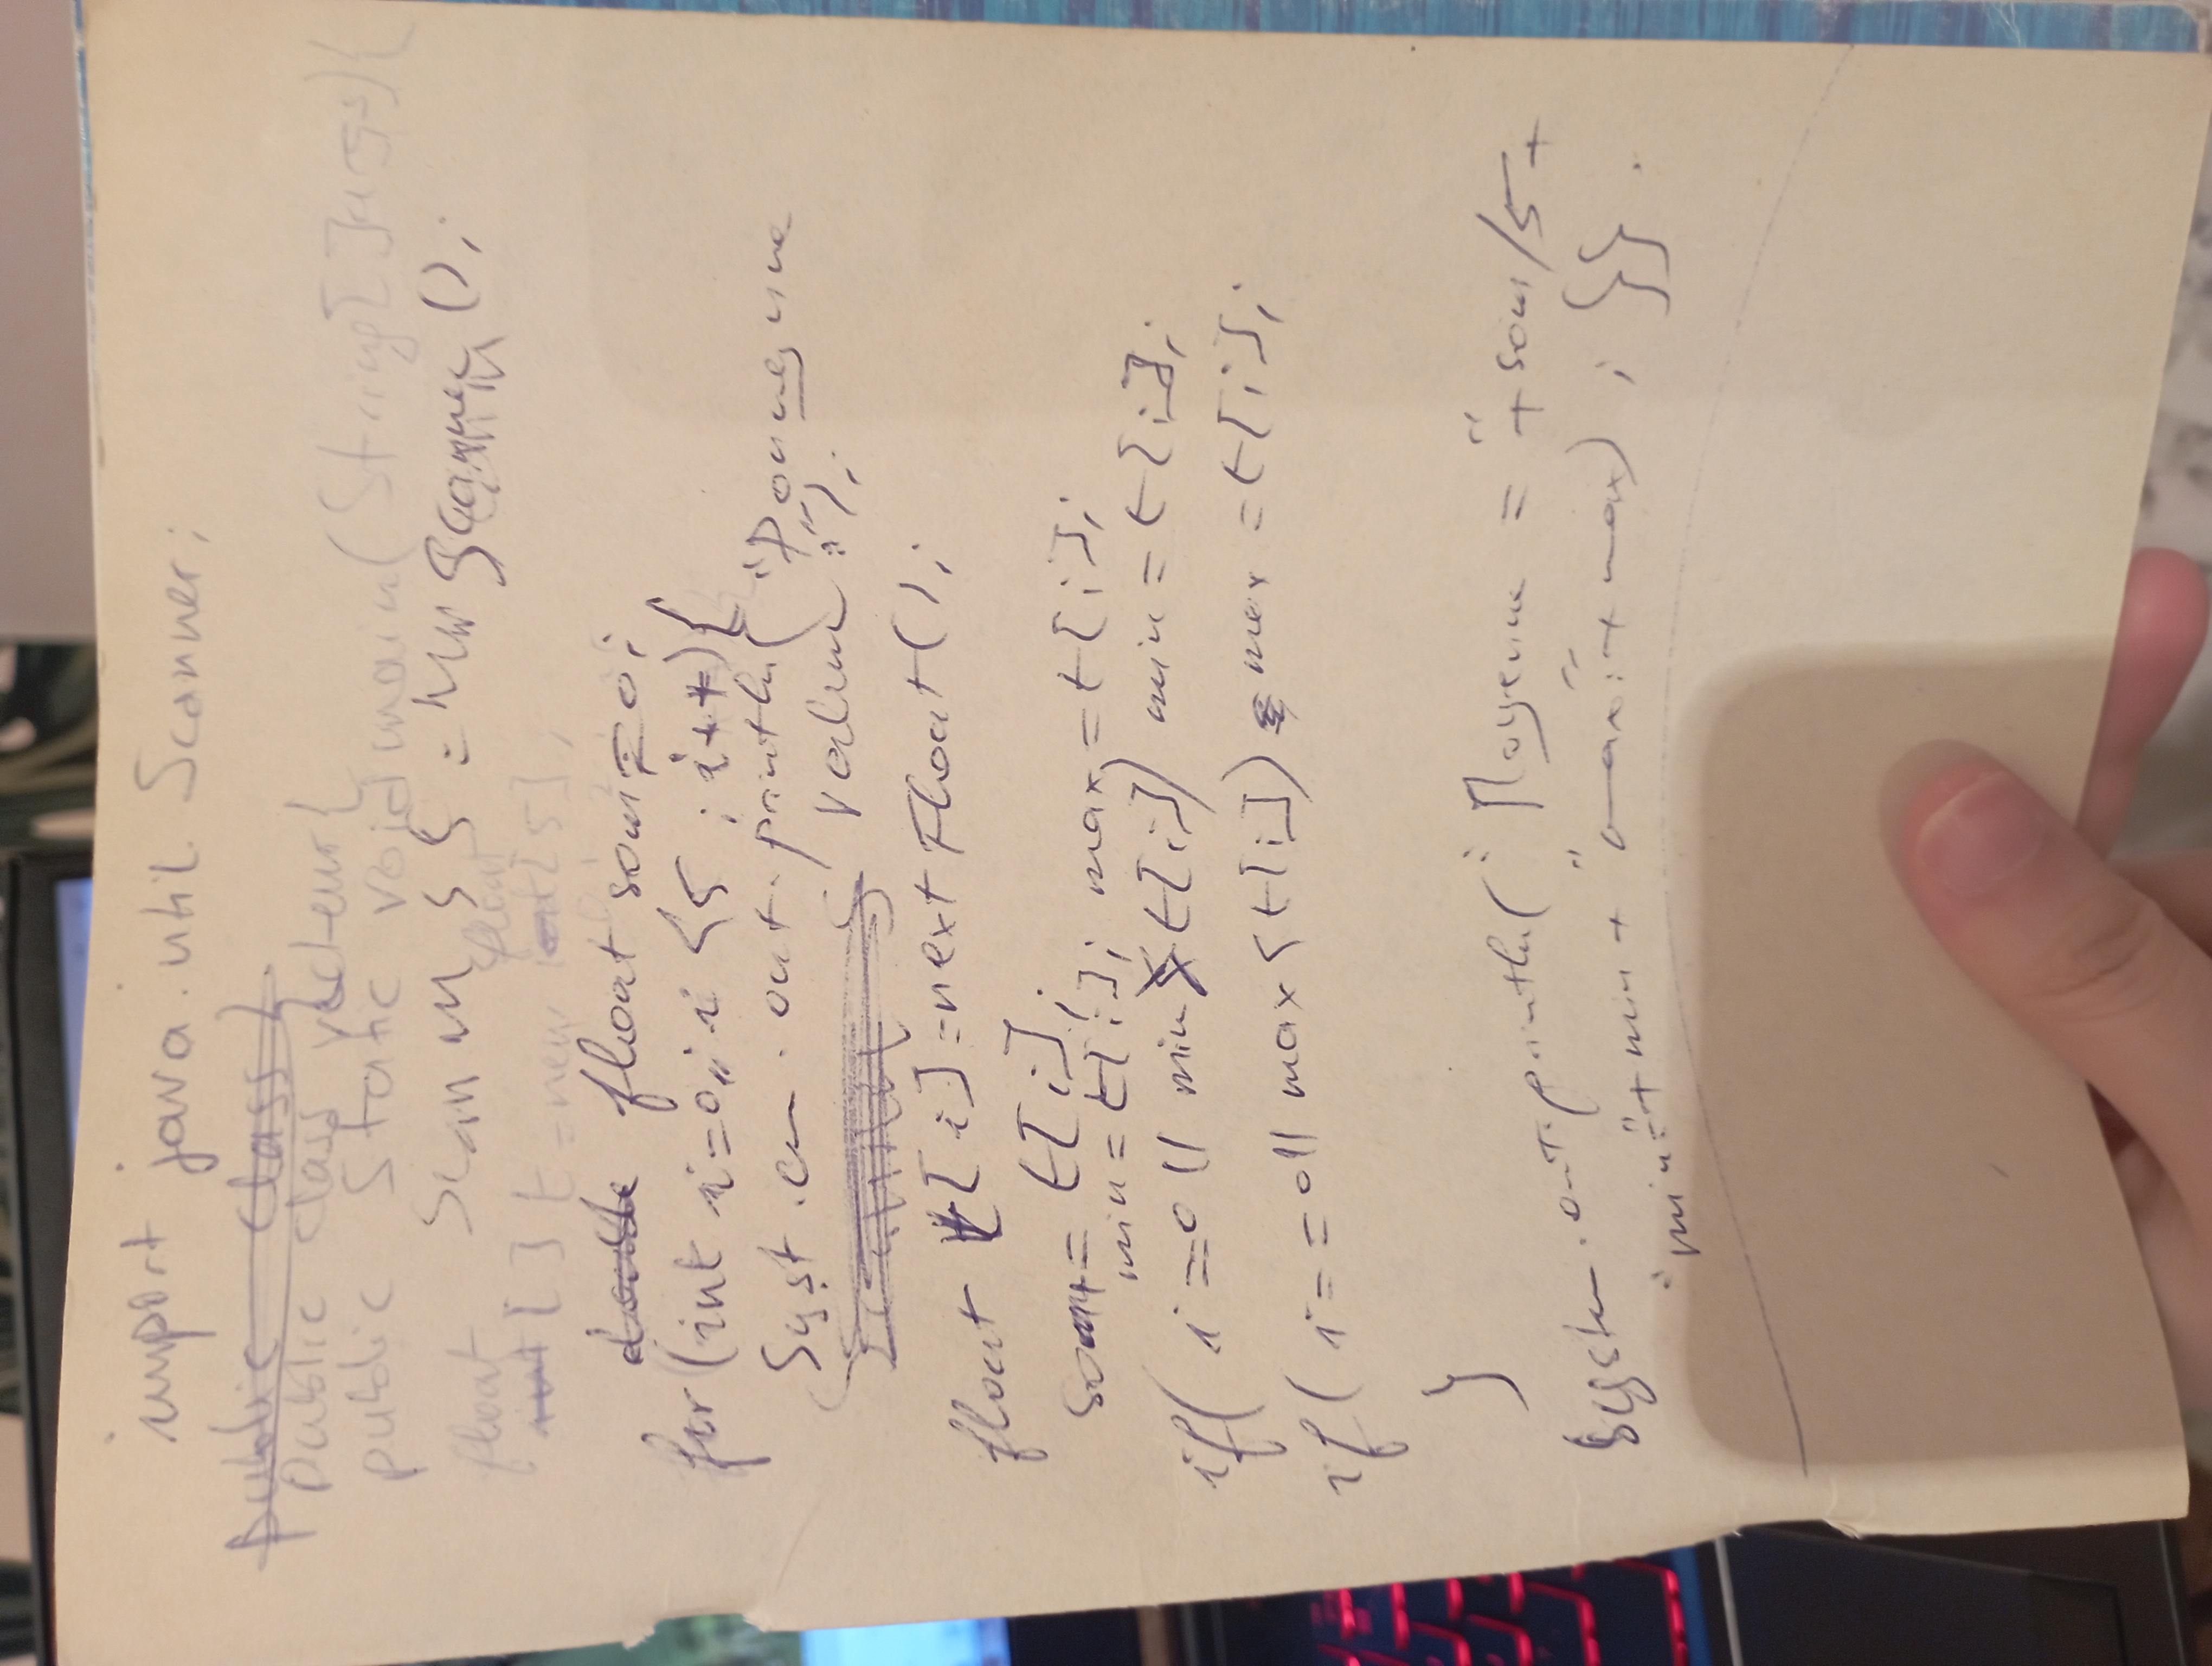 import java.util.Scanner;
public class }
public class vecteur{
public static void main(String[] args){
Scanner = new Scanner ();
float float
int [ ] t = new int[5];
double float som=0;
for (int i=0; i <5 ; i++){
System.out.println( "Donnez une
valeur :");
float t[i]=nextFloat();
som+= t[i];
min=t[i]; max=t[i];
if( i ==0 || min>t[i]) min = t[i];
if( i==0|| max<t[i]) max =t[i];
}
System.out.println(" Moyenne = "+som/5+
"min="+min+ "max:"+max) ; }} .